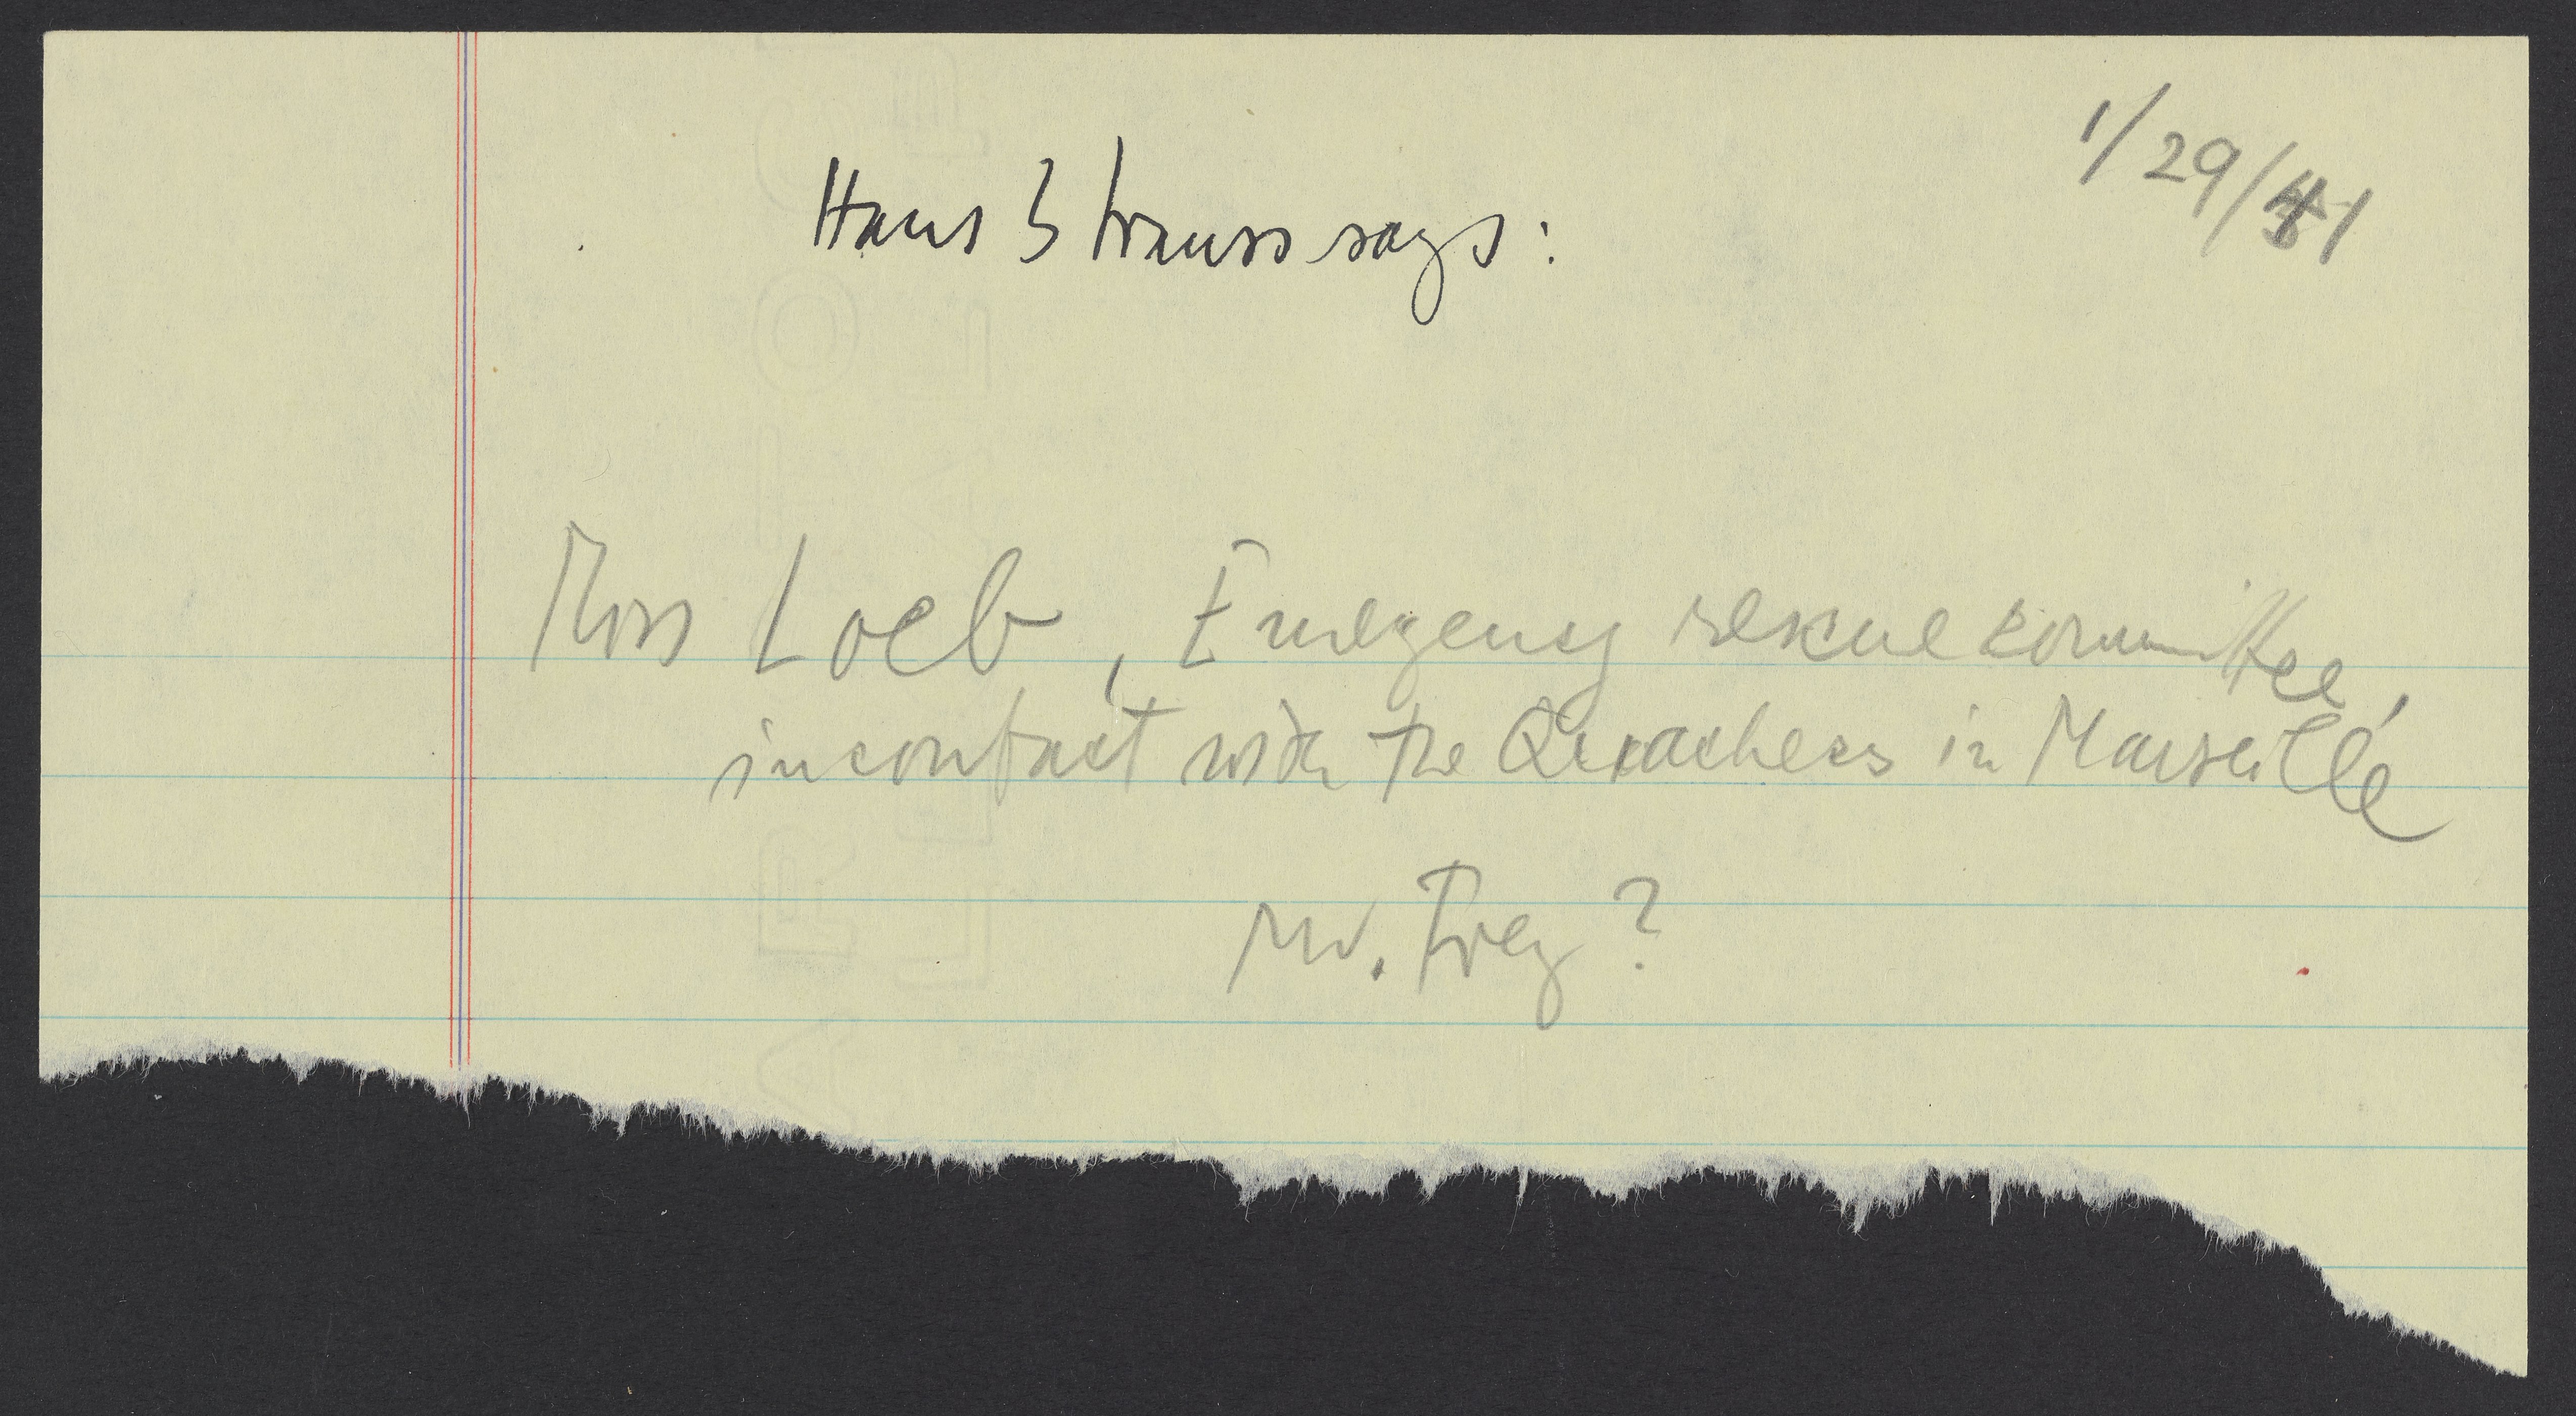 1/29/41
Hans Strauss says:
Miss Loeb, Emergency reskue committee,
in contact with the Quackers in Marseille
Mr. Frey?